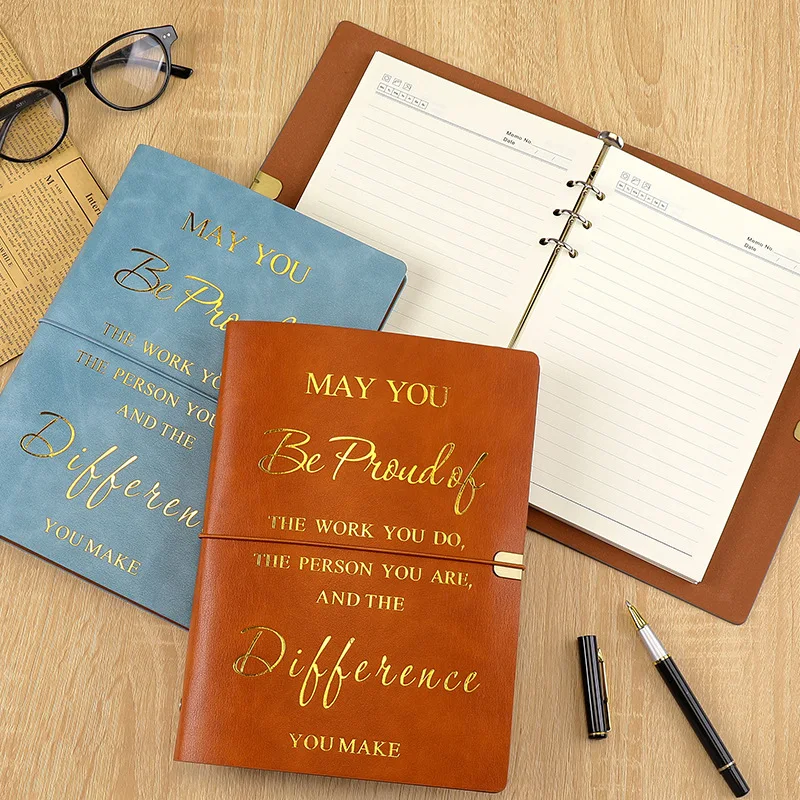 MAY YOU
Be Pro
THE WORK YO
THE PERSON YOU
AND THE
Differen
YOU MAKE
MAY YOU
Be Proud of
THE WORK YOU DO,
THE PERSON YOU ARE,
AND THE
Difference
YOU MAKE
Memo No.
Date / /
Memo No.
Date / /